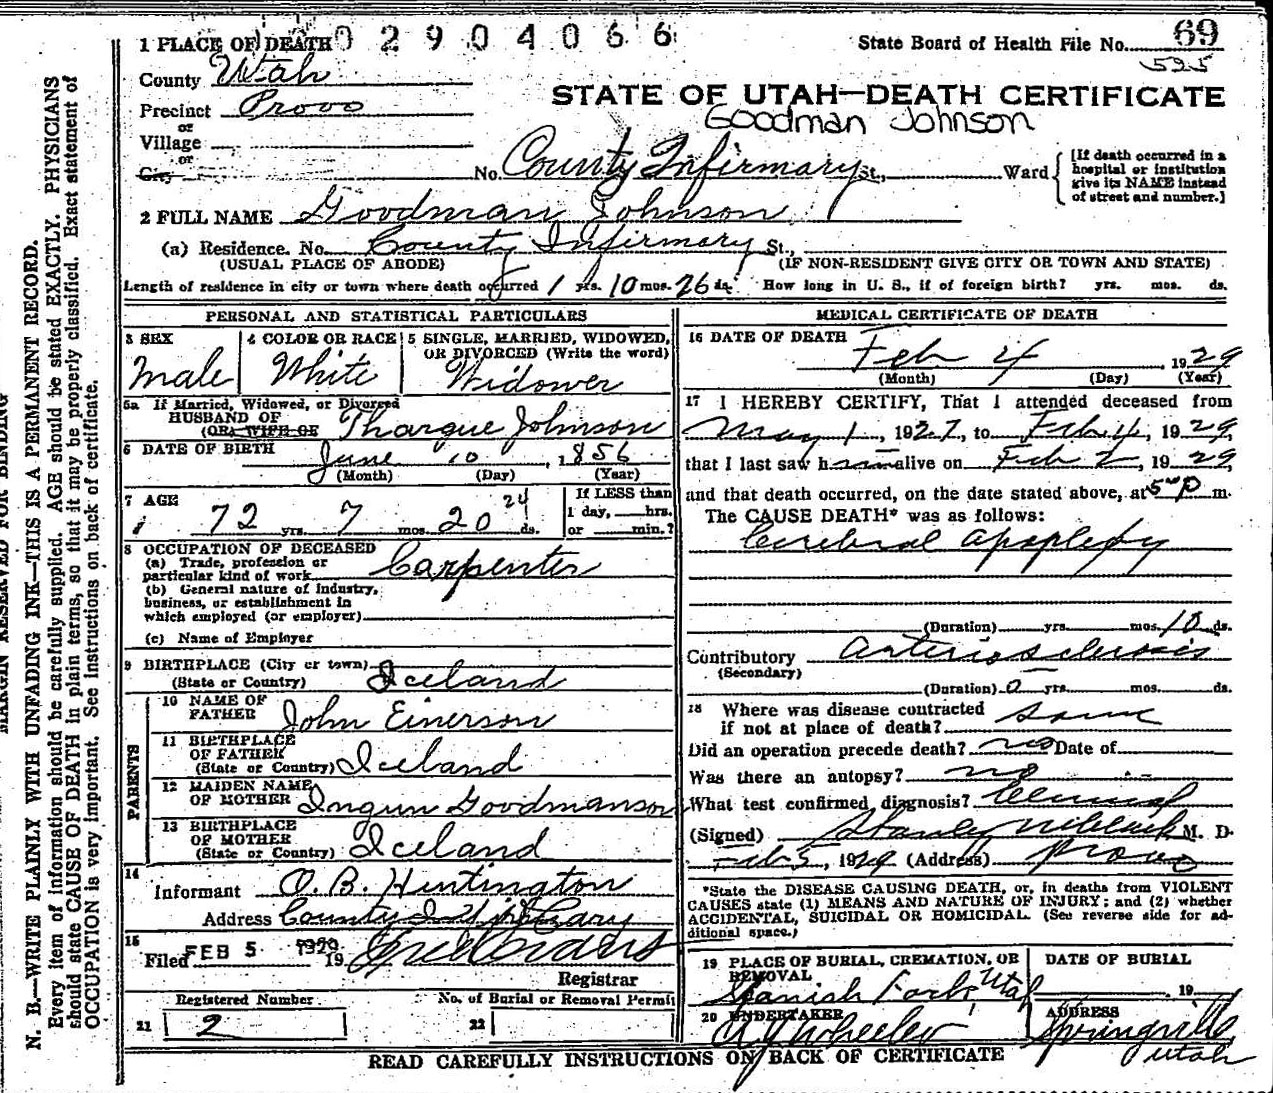 02904066
State Board of Health File No. 69
525
1 PLACE OF DEATH
County Utah
Precinct Provo
or
Village
or
City
STATE OF UTAH—DEATH CERTIFICATE
Goodman Johnson
No. County Infirmary St., Ward
[If death occurred in a
hospital or institution
give its NAME instead
of street and number.]
2 FULL NAME Goodman Johnson
(a) Residence. No. County Infirmary St.,
(USUAL PLACE OF ABODE) (IF NON-RESIDENT GIVE CITY OR TOWN AND STATE)
Length of residence in city or town where death occurred 1 yrs. 10 mos. 26 ds. How long in U. S., if of foreign birth? yrs. mos. ds.
PERSONAL AND STATISTICAL PARTICULARS
3 SEX
Male
4 COLOR OR RACE
White
5 SINGLE, MARRIED, WIDOWED,
OR DIVORCED (Write the word)
Widower
5a If Married, Widowed, or Divorced
HUSBAND OF
(OR WIFE OF Thargue Johnson
6 DATE OF BIRTH June 10, 1856
(Month) (Day) (Year)
7 AGE
72 yrs. 7 mos. 20 24 ds.
If LESS than
1 day, hrs.
or min.?
8 OCCUPATION OF DECEASED
(a) Trade, profession or
particular kind of work Carpenter
(b) General nature of industry,
business, or establishment in
which employed (or employer)
(c) Name of Employer
9 BIRTHPLACE (City or town)
(State or Country) Iceland
PARENTS
10 NAME OF
FATHER John Einerson
11 BIRTHPLACE
OF FATHER
(State or Country) Iceland
12 MAIDEN NAME
OF MOTHER Ingun Goodmanson
13 BIRTHPLACE
OF MOTHER
(State or Country) Iceland
14
Informant O. B. Huntington
Address County Infirmary
15
Filed FEB 5 1929 19
Registrar
Registered Number
21 2
No. of Burial or Removal Permit
22
MEDICAL CERTIFICATE OF DEATH
16 DATE OF DEATH
Feb 4 1929
(Month) (Day) (Year)
17 I HEREBY CERTIFY, That I attended deceased from
May 1, 1927, to Feb 4, 1929,
that I last saw him alive on Feb 2, 1929,
and that death occurred, on the date stated above, at 5 p m.
The CAUSE DEATH* was as follows:
Cerebral apoplexy
(Duration) yrs. mos. 10 ds.
Contributory Arterio sclerosis
(Secondary)
(Duration) yrs. mos. ds.
18 Where was disease contracted
if not at place of death? same
Did an operation precede death? no Date of
Was there an autopsy? no
What test confirmed diagnosis? Clinical
(Signed) Stanley M. D.
Feb 5, 1929 (Address) Provo
*State the DISEASE CAUSING DEATH, or, in deaths from VIOLENT
CAUSES state (1) MEANS AND NATURE OF INJURY; and (2) whether
ACCIDENTAL, SUICIDAL OR HOMICIDAL. (See reverse side for ad-
ditional space.)
19 PLACE OF BURIAL, CREMATION, OR
REMOVAL
Spanish Fork, Utah
DATE OF BURIAL
19
20 UNDERTAKER
Wheeler
ADDRESS
Springville,
Utah
READ CAREFULLY INSTRUCTIONS ON BACK OF CERTIFICATE
MARGIN RESERVED FOR BINDING
N. B.—WRITE PLAINLY WITH UNFADING INK—THIS IS A PERMANENT RECORD.
Every item of information should be carefully supplied. AGE should be stated EXACTLY. PHYSICIANS
should state CAUSE OF DEATH in plain terms, so that it may be properly classified. Exact statement of
OCCUPATION is very important. See instructions on back of certificate.